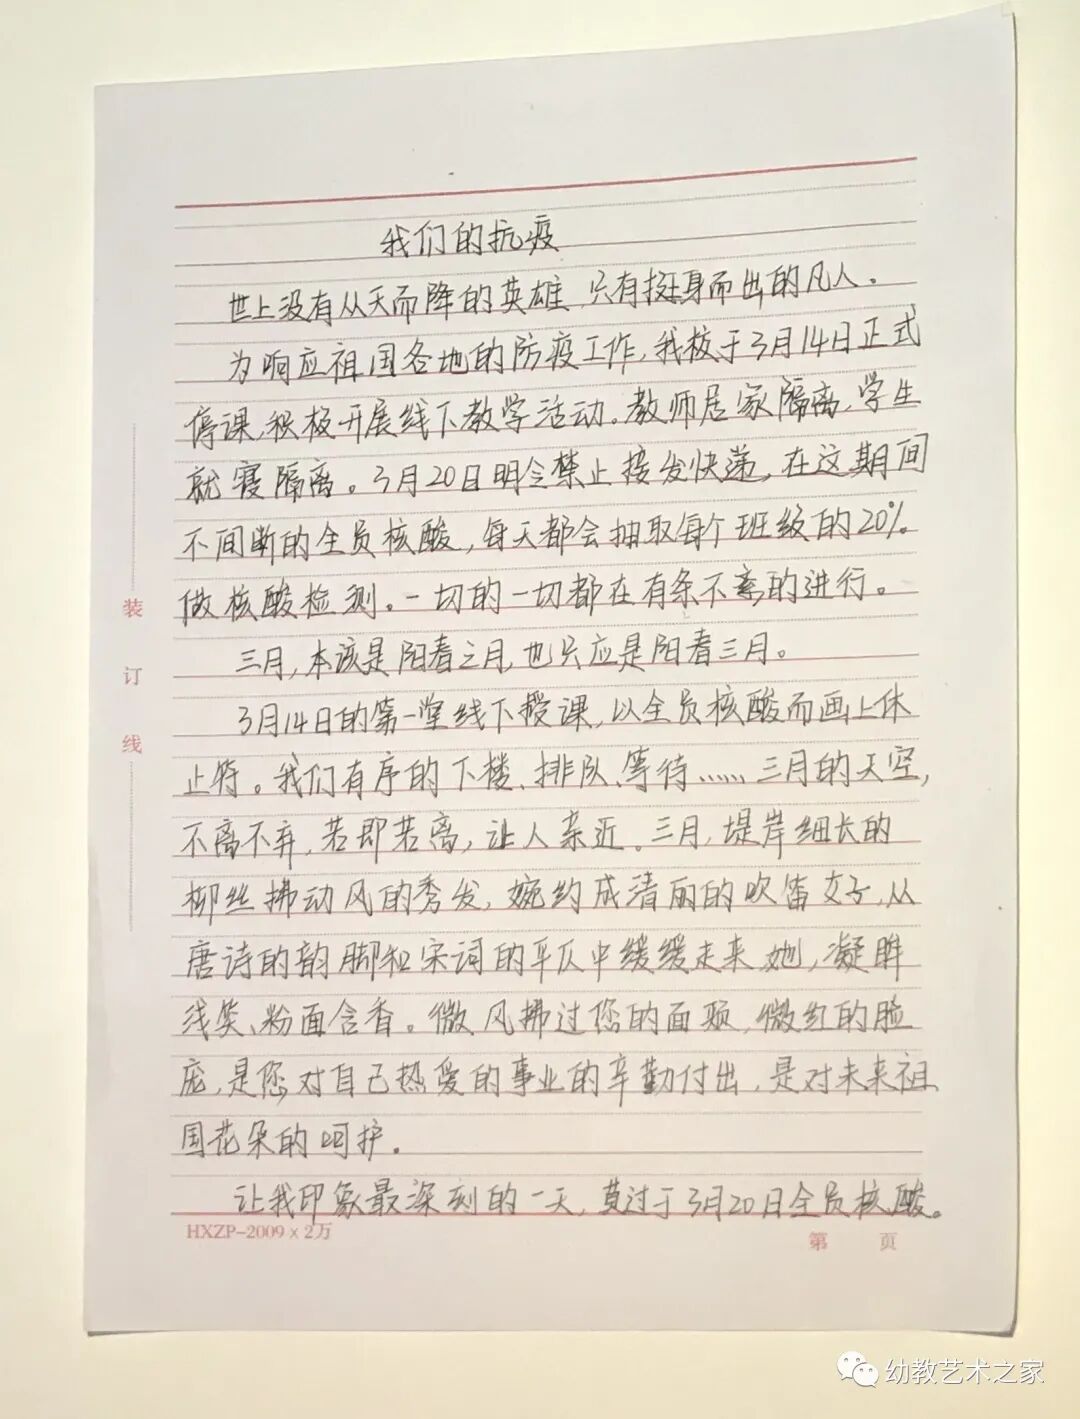 我们的抗疫
世上没有从天而降的英雄,只有挺身而出的凡人。
为响应祖国各地的防疫工作,我校于3月14日正式
停课,积极开展线下教学活动。教师居家隔离,学生
就寝隔离。3月20日明令禁止接发快递,在这期间
不间断的全员核酸,每天都会抽取每个班级的20%
做核酸检测。一切的一切都在有条不紊的进行。
三月,本该是阳春三月,也只应是阳春三月。
3月14日的第一堂线下授课,以全员核酸而画上休
止符。我们有序的下楼、排队、等待……三月的天空,
不离不弃,若即若离,让人亲近。三月,堤岸细长的
柳丝拂动风的秀发,婉约成清丽的吹笛女子,从
唐诗的韵脚和宋词的平仄中缓缓走来,她,凝眸
浅笑、粉面含香。微风拂过您的面颊,微红的脸
庞,是您对自己热爱的事业的辛勤付出,是对未来祖
国花朵的呵护。
让我印象最深刻的一天,莫过于3月20日全员核酸。
装
订
线
HXZP-2009×2万
第 页
幼教艺术之家